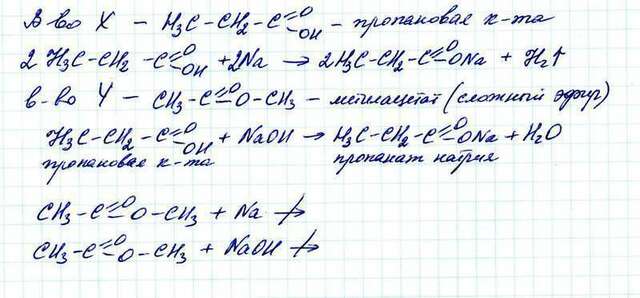 В-во X – H₃C–CH₂–C(=O)OH – пропановая к-та
2 H₃C–CH₂–C(=O)OH + 2Na → 2H₃C–CH₂–C(=O)ONa + H₂↑
в-во Y – CH₃–C(=O)–O–CH₃ – метилацетат (сложный эфир)
H₃C–CH₂–C(=O)OH + NaOH → H₃C–CH₂–C(=O)ONa + H₂O
пропановая к-та пропанат натрия
CH₃–C(=O)–O–CH₃ + Na ↛
CH₃–C(=O)–O–CH₃ + NaOH ↛